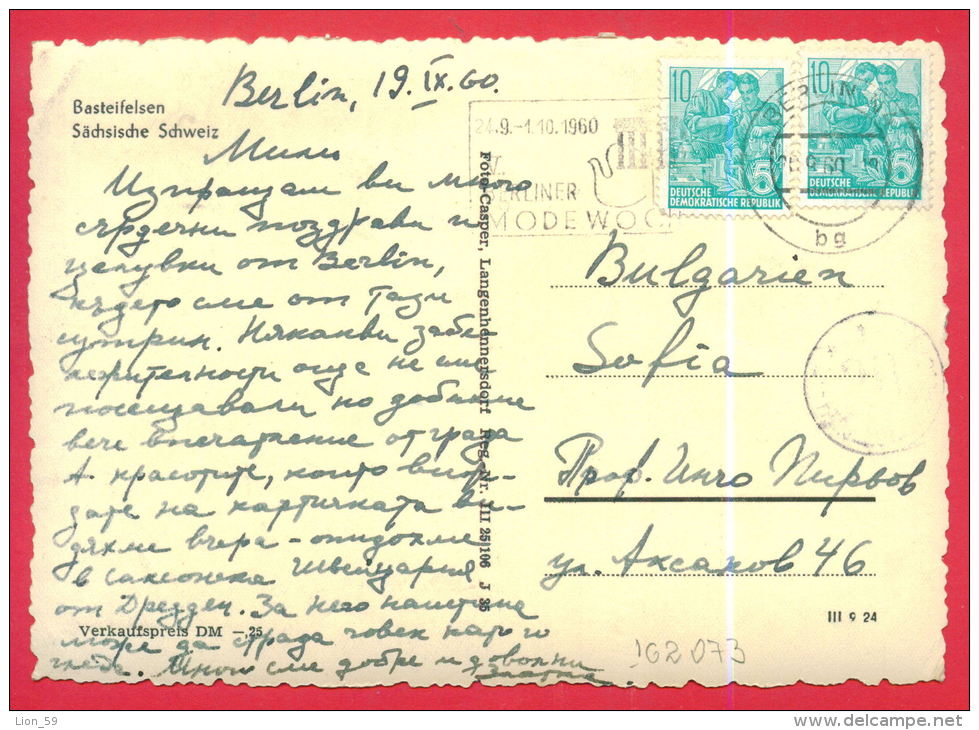 Berlin, 19.IX.60.
Basteifelsen
Sächsische Schweiz
Мили
Изпращам ви много
сърдечни поздрави и
целувки от Berlin,
където сме от тази
сутрин. Някакви забе-
лежителности още не сме
посещавали но добихме
вече впечатление от града
А красотите, които виж-
дате на картичката ви-
дяхме вчера - отидохме
в саксонска Швейцария
от Дрезден. За него наистина
може да страда човек като го
гледа. Много сме добре и доволни
Verkaufspreis DM -,25
Foto-Casper, Langenhennersdorf Reg.-Nr. III 25|106 J 35
24.9.-1.10.1960
BERLINER
MODEWOC
10
5
DEUTSCHE
DEMOKRATISCHE REPUBLIK
10
5
DEUTSCHE
DEMOKRATISCHE REPUBLIK
BERLIN
bg
Bulgarien
Sofia
Проф. Инчо Пирьов
ул. Аксаков 46
III 9 24
162073
Lion_59
http://www.delcampe.net